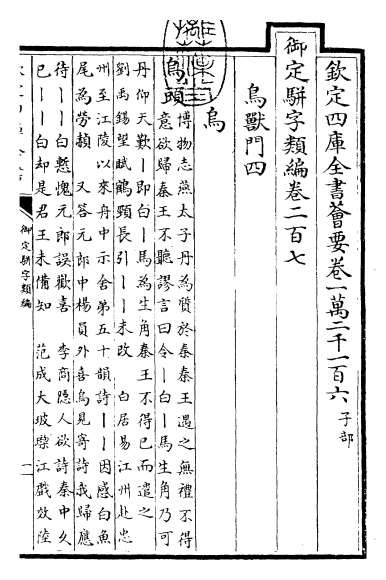 欽定四庫全書薈要卷一萬二千一百六 子部
御定駢字類編卷二百七
鳥獸門四
烏
烏頭
博物志燕太子丹為質於秦秦王遇之無禮不得
意欲歸秦王不聽謬言曰令丨白丨馬生角乃可
丹仰天歎丨即白丨馬為生角秦王不得已而遣之
劉禹錫望賦鶴頸長引丨丨未改 白居易江州赴忠
州至江陵以來舟中示舍弟五十韻詩丨丨因感白魚
尾為勞赬 又答元郎中楊員外喜烏見寄詩我歸應
待丨丨白慙愧元郎誤歡喜 李商隱人欲詩秦中久
已丨丨白却是君王未備知 范成大坡㙩江戲效陸
御定駢字類編
一